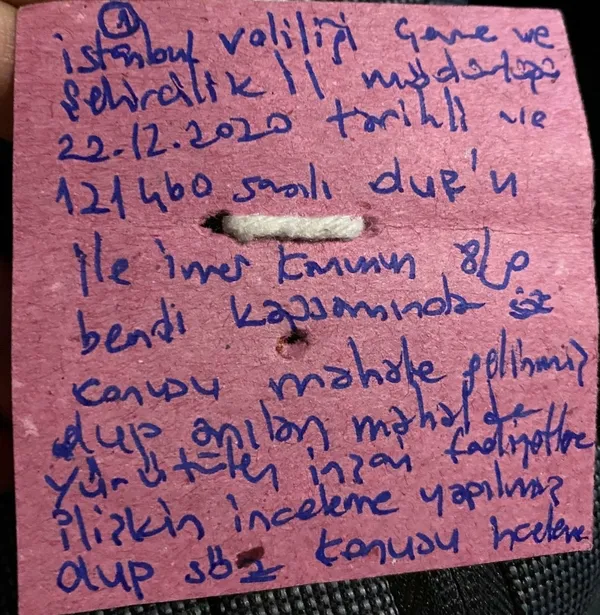 1
istanbul valiliği Çevre ve
Şehircilik İl müdürlüğü
22.12.2020 tarihli ve
121460 sayılı dup'u
ile imar kanunun 8/p
bendi kapsamında
konusu mahale gelinmiş
dup anılan mahalde
yürütülen inşai faaliyetlere
ilişkin inceleme yapılmış
dup söz konusu inceleme